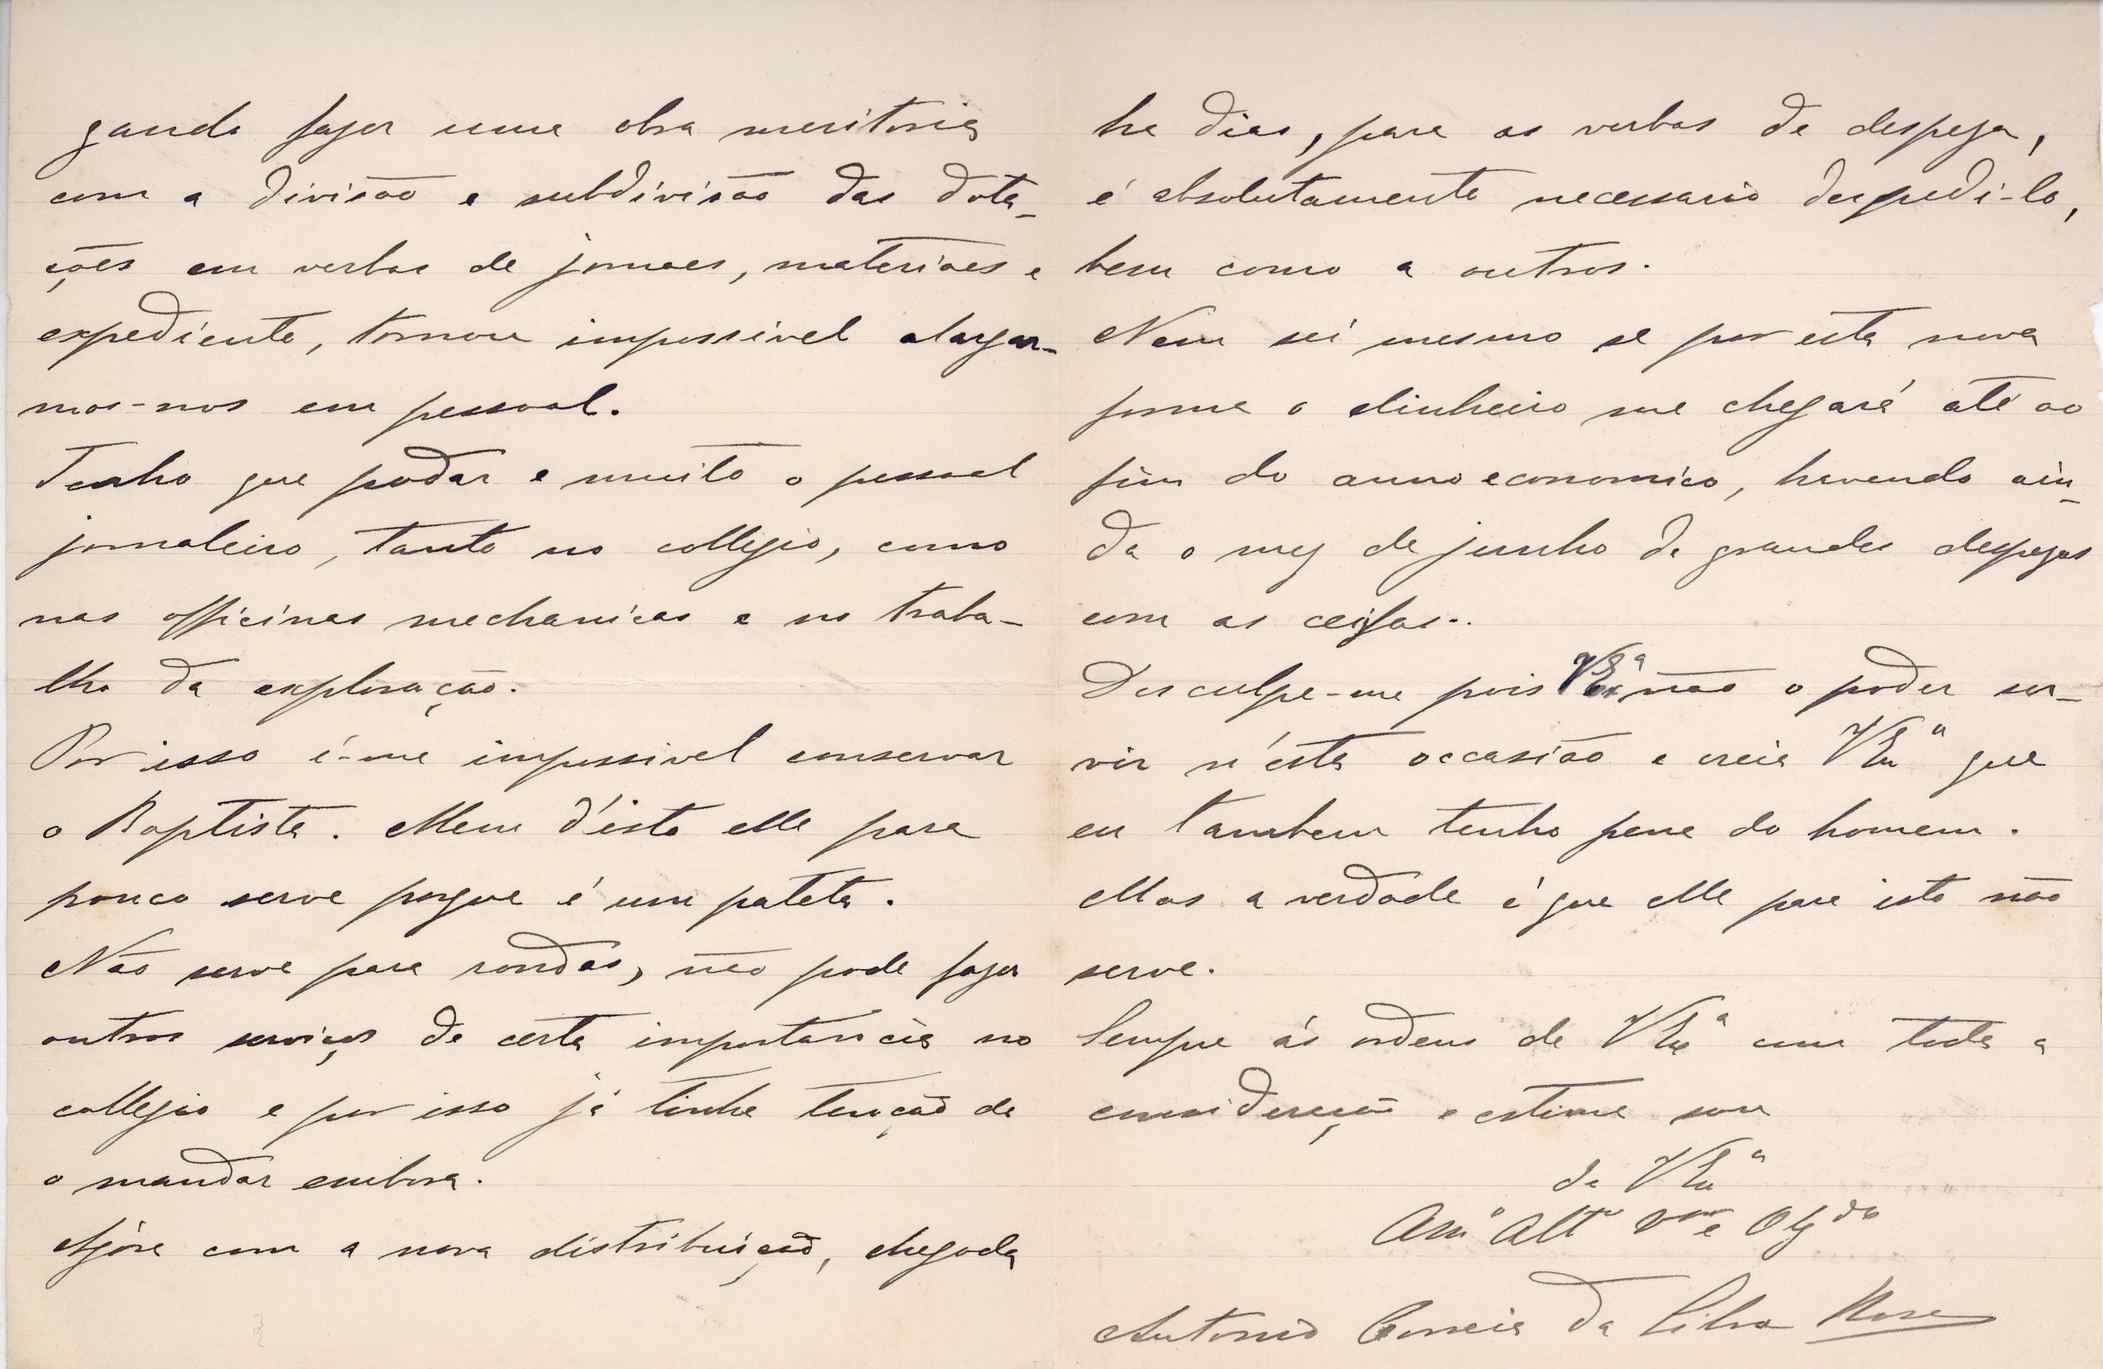 gando fazer uma obra meritoria
com a divisão e subdivisão das dota-
ções em verbas de jornaes, materiaes e
expediente, tornou impossivel alargar-
mos-nos em pessoal.
Tenho que podar e muito o pessoal
jornaleiro, tanto no collegio, como
nas officinas mechanicas e no traba-
lho da exploração.
Por isso é-me impossivel conservar
o Baptista. Alem d'isto elle para
pouco serve porque é um pateta.
Não serve para rondas, não pode fazer
outros serviços de certa importancia no
collegio e por isso já tinha tenção de
o mandar embora.
Agora com a nova distribuição, chegada
ha dias, para as verbas de despeza,
é absolutamente necessario despedi-lo,
bem como a outros.
Nem sei mesmo se por esta nova
forma o dinheiro me chegará até ao
fim do anno economico, havendo ain-
da o mez de junho de grandes despezas
com as ceifas..
Desculpe-me pois VExª não o poder ser-
vir n'esta occasião e creia VExª que
eu tambem tenho pena do homem.
Mas a verdade é que elle para isto não
serve.
Sempre ás ordens de VExª com toda a
consideração e estima sou
de VExª
Amº Attº Vor e Obgdo
Antonio Correia da Silva Rosa